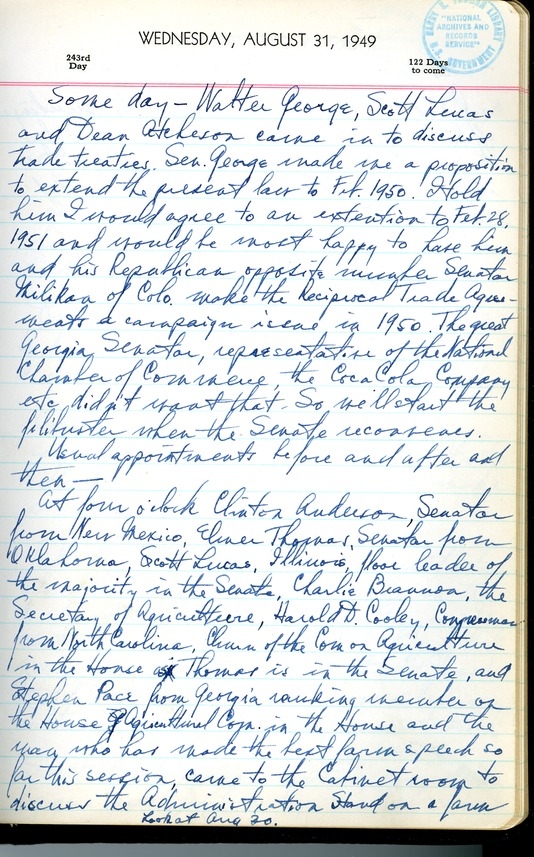 WEDNESDAY, AUGUST 31, 1949
243rd
Day
122 Days
to come
HARRY S. TRUMAN LIBRARY
"NATIONAL
ARCHIVES AND
RECORDS
SERVICE"
U.S. GOVERNMENT
Some day - Walter George, Scott Lucas
and Dean Atcheson came in to discuss
trade treaties. Sen. George made me a proposition
to extend the present law to Feb. 1950. I told
him I would agree to an extention to Feb. 28,
1951 and would be most happy to have him
and his Republican opposite number Senator
Milikan of Colo. make the Reciprocal Trade Agree-
ments a campaign issue in 1950. The great
Georgia Senator, representative of the National
Chamber of Commerce, the Coca Cola Company
etc didn't want that. So we'll start the
filibuster when the Senate reconvenes.
Usual appointments before and after and
then—
At four o'clock Clinton Anderson, Senator
from New Mexico, Elmer Thomas, Senator from
Oklahoma, Scott Lucas, Illinois, floor leader of
the majority in the Senate, Charlie Brannon, the
Secretary of Agriculture, Harold D. Cooley, Congressman
from North Carolina, Chmn of the Com on Agriculture
in the House as Thomas is in the Senate, and
Stephen Pace from Georgia ranking member on
the House Agricultural Com. in the House and the
man who has made the best farm speech so
far this session, came to the Cabinet room to
discuss the Administration Stand on a farm
Look at Aug 30.